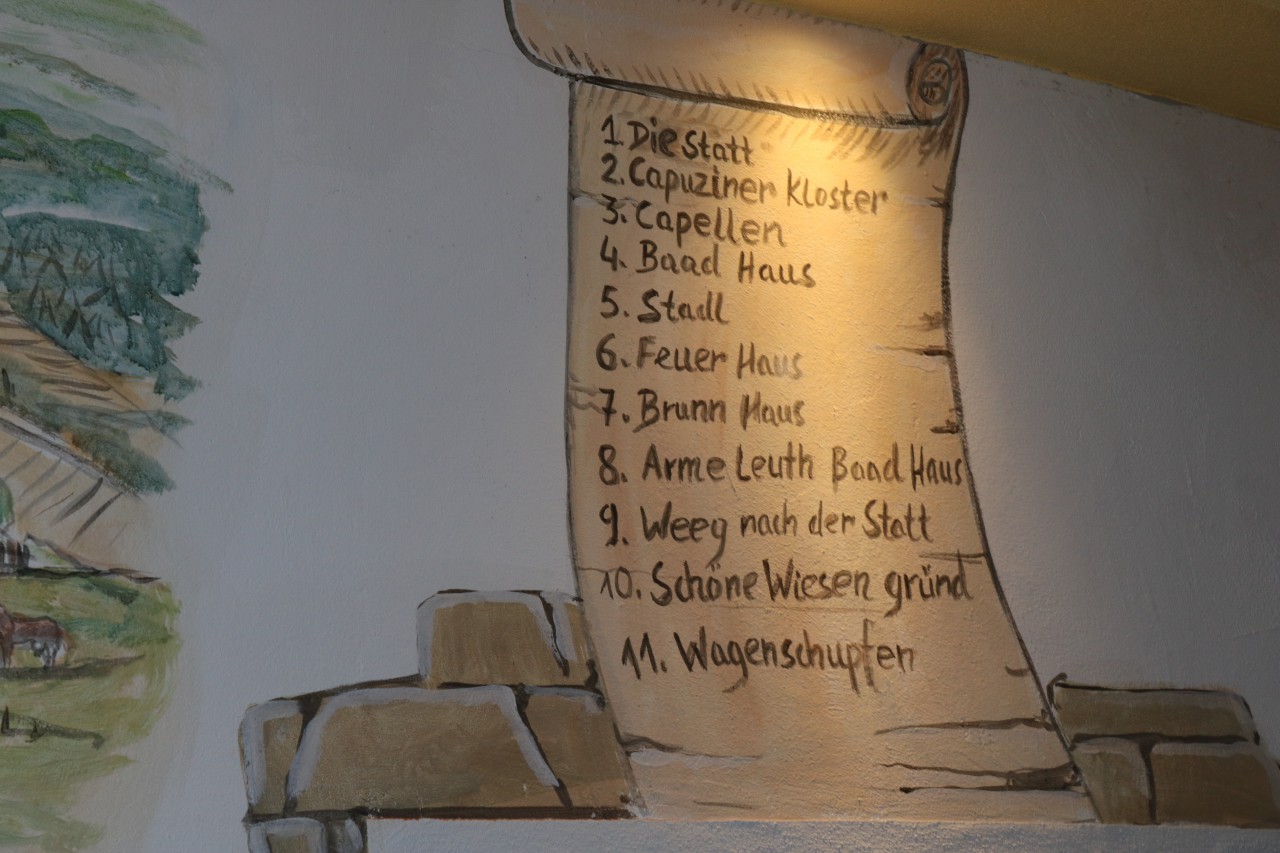 1. Die Statt
2. Capuziner Kloster
3. Capellen
4. Baad Haus
5. Stadl
6. Feuer Haus
7. Brunn Haus
8. Arme Leuth Baad Haus
9. Weeg nach der Statt
10. Schöne Wiesen gründ
11. Wagenschupfen